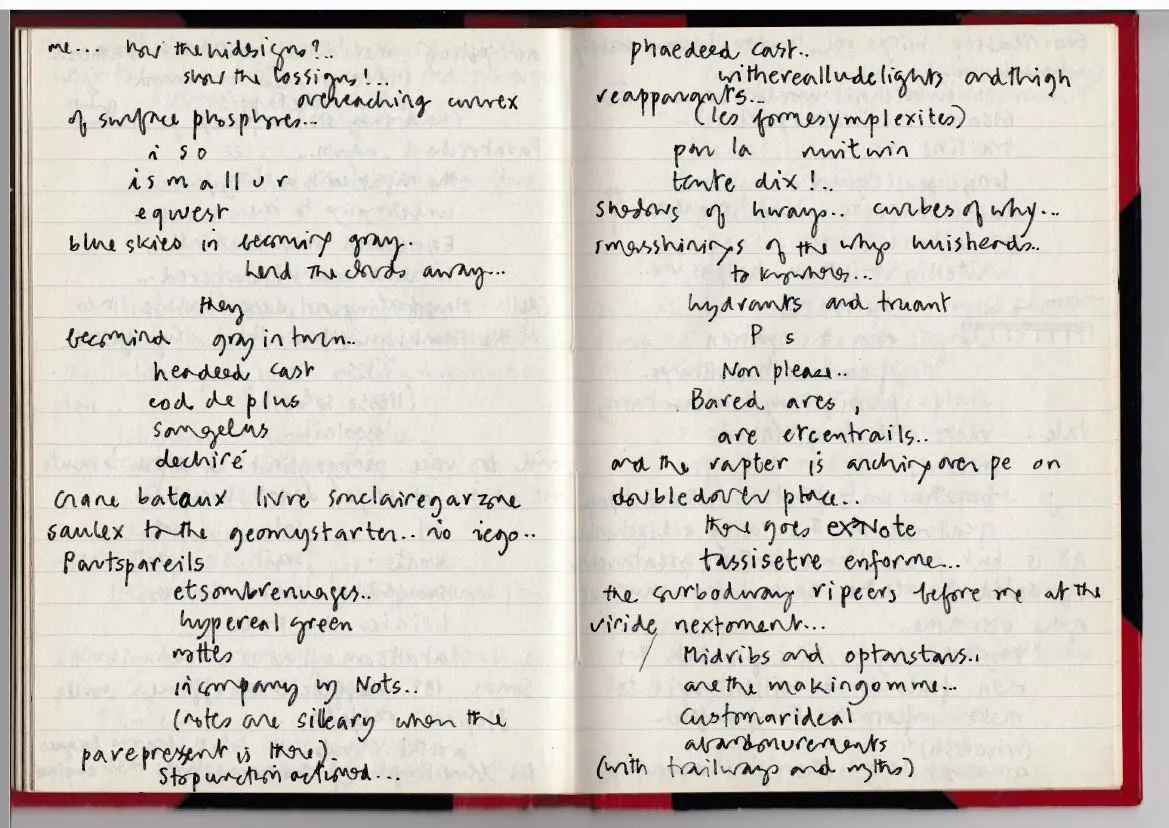 me... how the hidesigns?..
show the lossigns!..
orcheaching currex
of surface phosphores...
i s o
i s m a l l u r
eqwest
blue skies in becoming gray..
herd the clouds away...
they
becomind gray in turn..
headeed cast
cod de plus
sangelus
dechiré
crane bataux livre sonclairegarzone
saulex to the geomystarter.. no iego..
Partspareils
etsombrenuages..
hypereal green
mottes
in company by Nots..
(notes are sileary when the
parepresent is there)
Stopunctionactioned...
phaedeed cast..
withereallude lights and thigh
reapparants...
(les formesymplexites)
par la nuitwin
tante dix!..
shadows of hways.. curlbes of why...
smasshinings of the whys huisheads..
to knywheres...
hydrants and truant
P s
Non please..
Bared ares,
are ercentrails..
and the rapter is anching over pe on
doubledover place..
there goes ex-Note
tassisetre enforme...
the surbodway ripeers before me at the
viride nextoment...
Midribs and optanstans..
are the makingomme...
customarideal
abandonurements
(with trailways and myths)